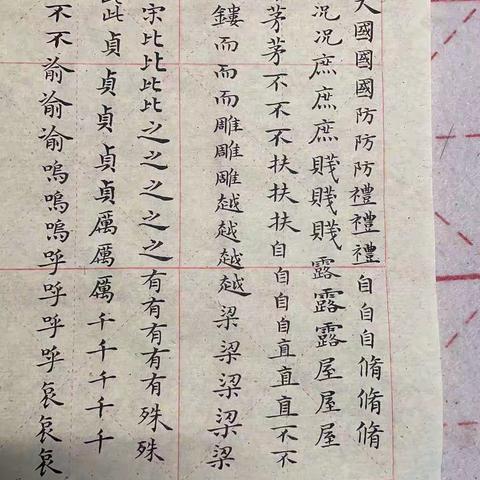 大國國國防防防禮禮禮自自自脩脩脩
況況庶庶庶賤賤賤露露露屋屋屋
茅茅不不不扶扶扶自自自自直直直不不
鏤而而而雕雕雕越越越越梁梁梁梁梁
宋比比比比之之之之之有有有有有殊殊
此貞貞貞貞貞厲厲厲千千千千千
不不渝渝渝嗚嗚嗚呼呼呼呼哀哀哀